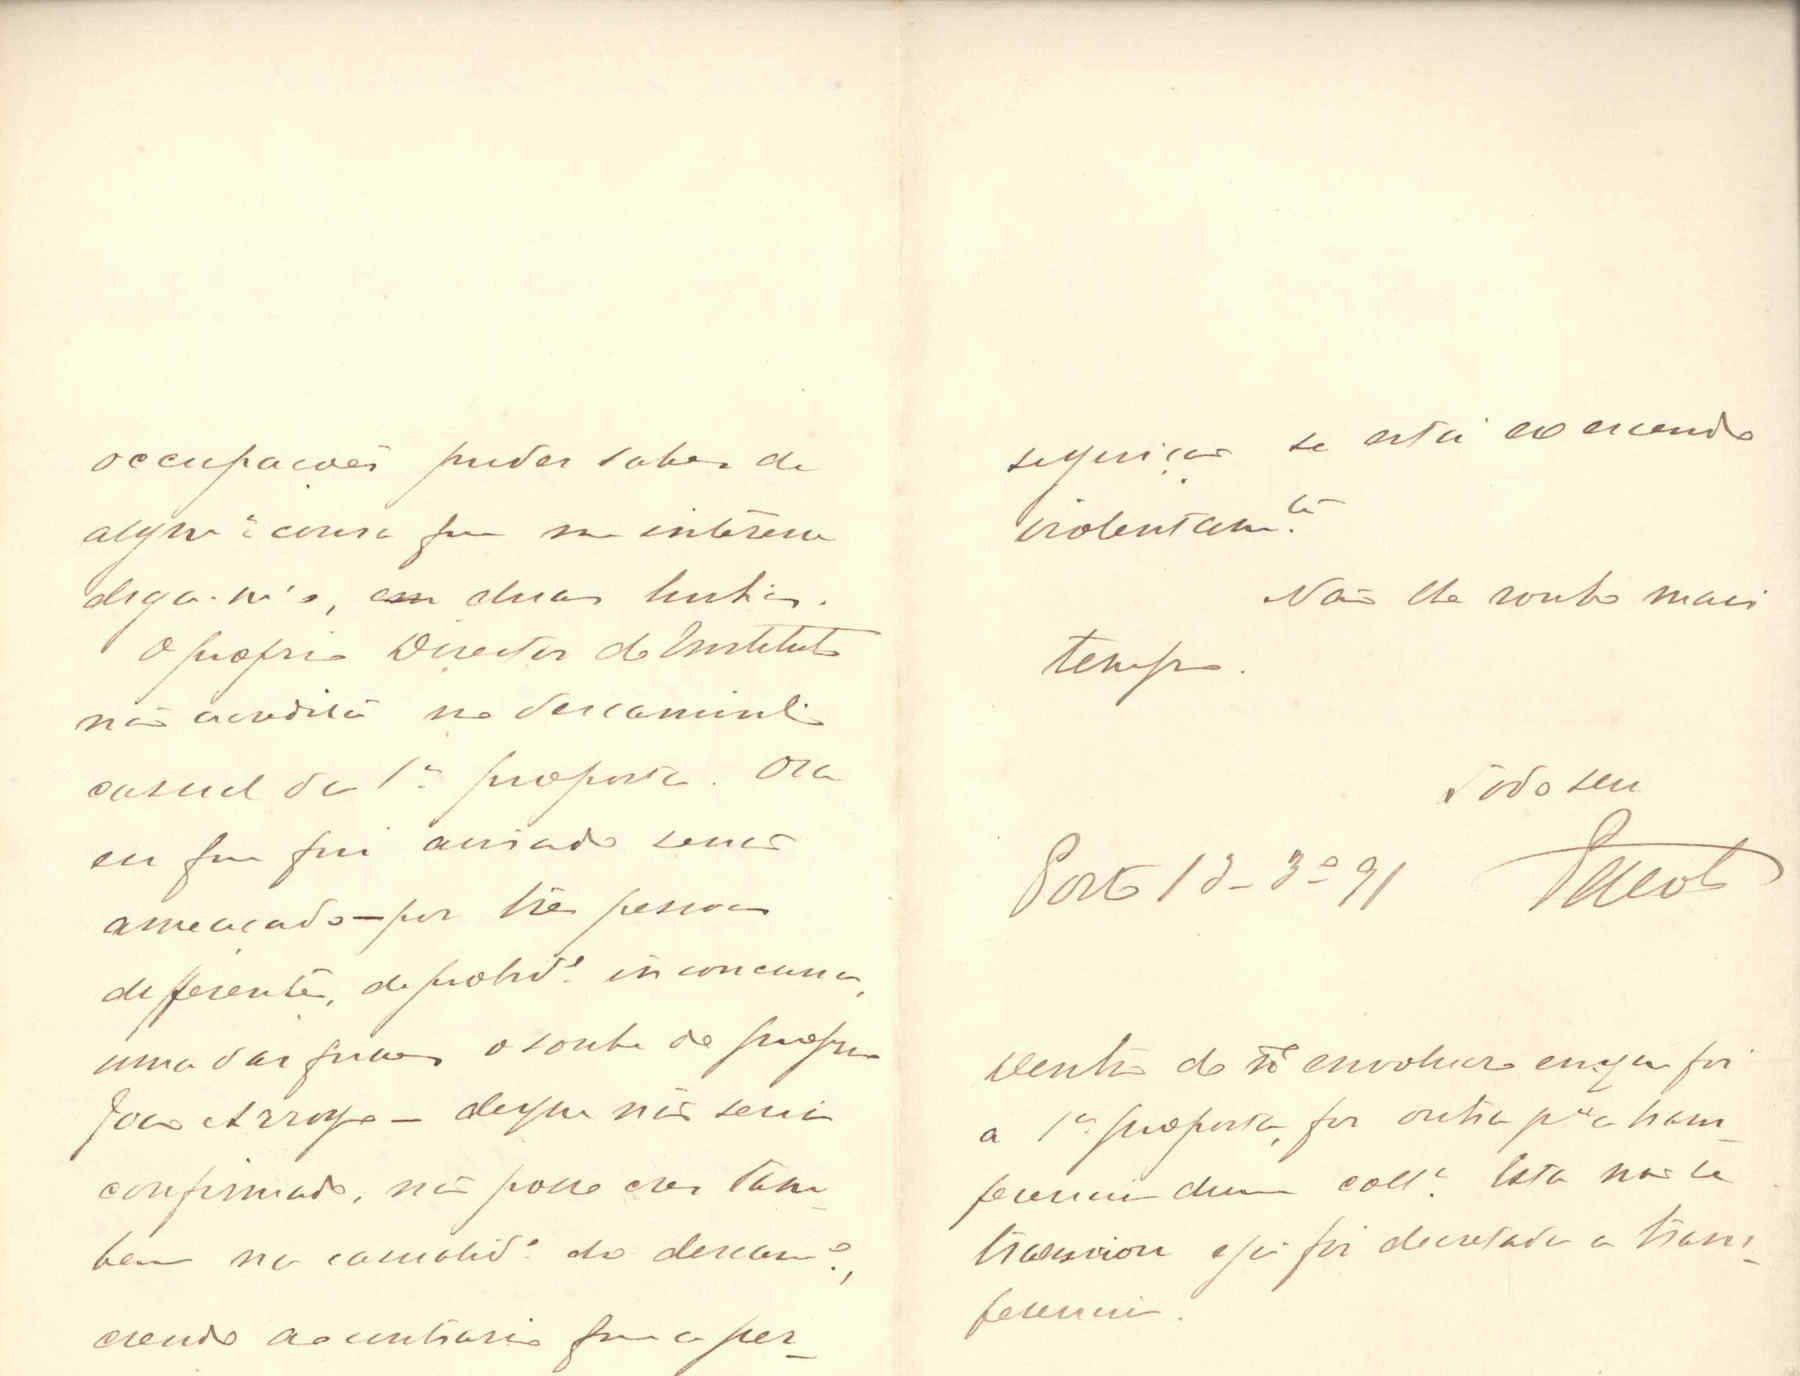 occupações puder saber de
alguã cousa que me interesse
diga-m'o, em duas linhas.
O proprio Director do Instituto
não acredita no descaminho
casual da 1ª proposta. Ora
eu que fui avisado senão
ameaçado — por três pessoas
differentes, de probidᵉ inconcussa,
uma das quaes o soube do proprio
João Arroyo — de que não seria
confirmado, não posso crer tam-
bem na casualidᵉ do descamº,
crendo ao contrario que a per-
seguição se está exercendo
violentamᵗᵉ.
Não lhe roubo mais
tempo.
Todo seu
Porto 13-3º-91
Dentro do envolucro em que foi
a 1ª proposta, foi outra pª a trans-
ferencia duma collª. Esta não se
e já foi decretada a trans-
ferencia.